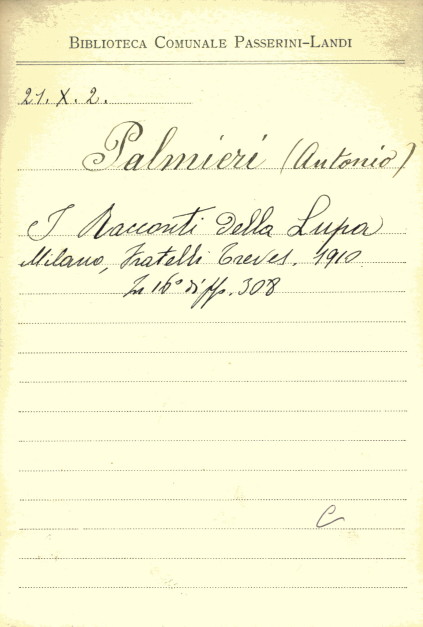 Biblioteca Comunale Passerini-Landi
21. X. 2.
Palmieri (Antonio)
I Racconti della Lupa
Milano, Fratelli Treves. 1910
In 16° di pp. 308
C